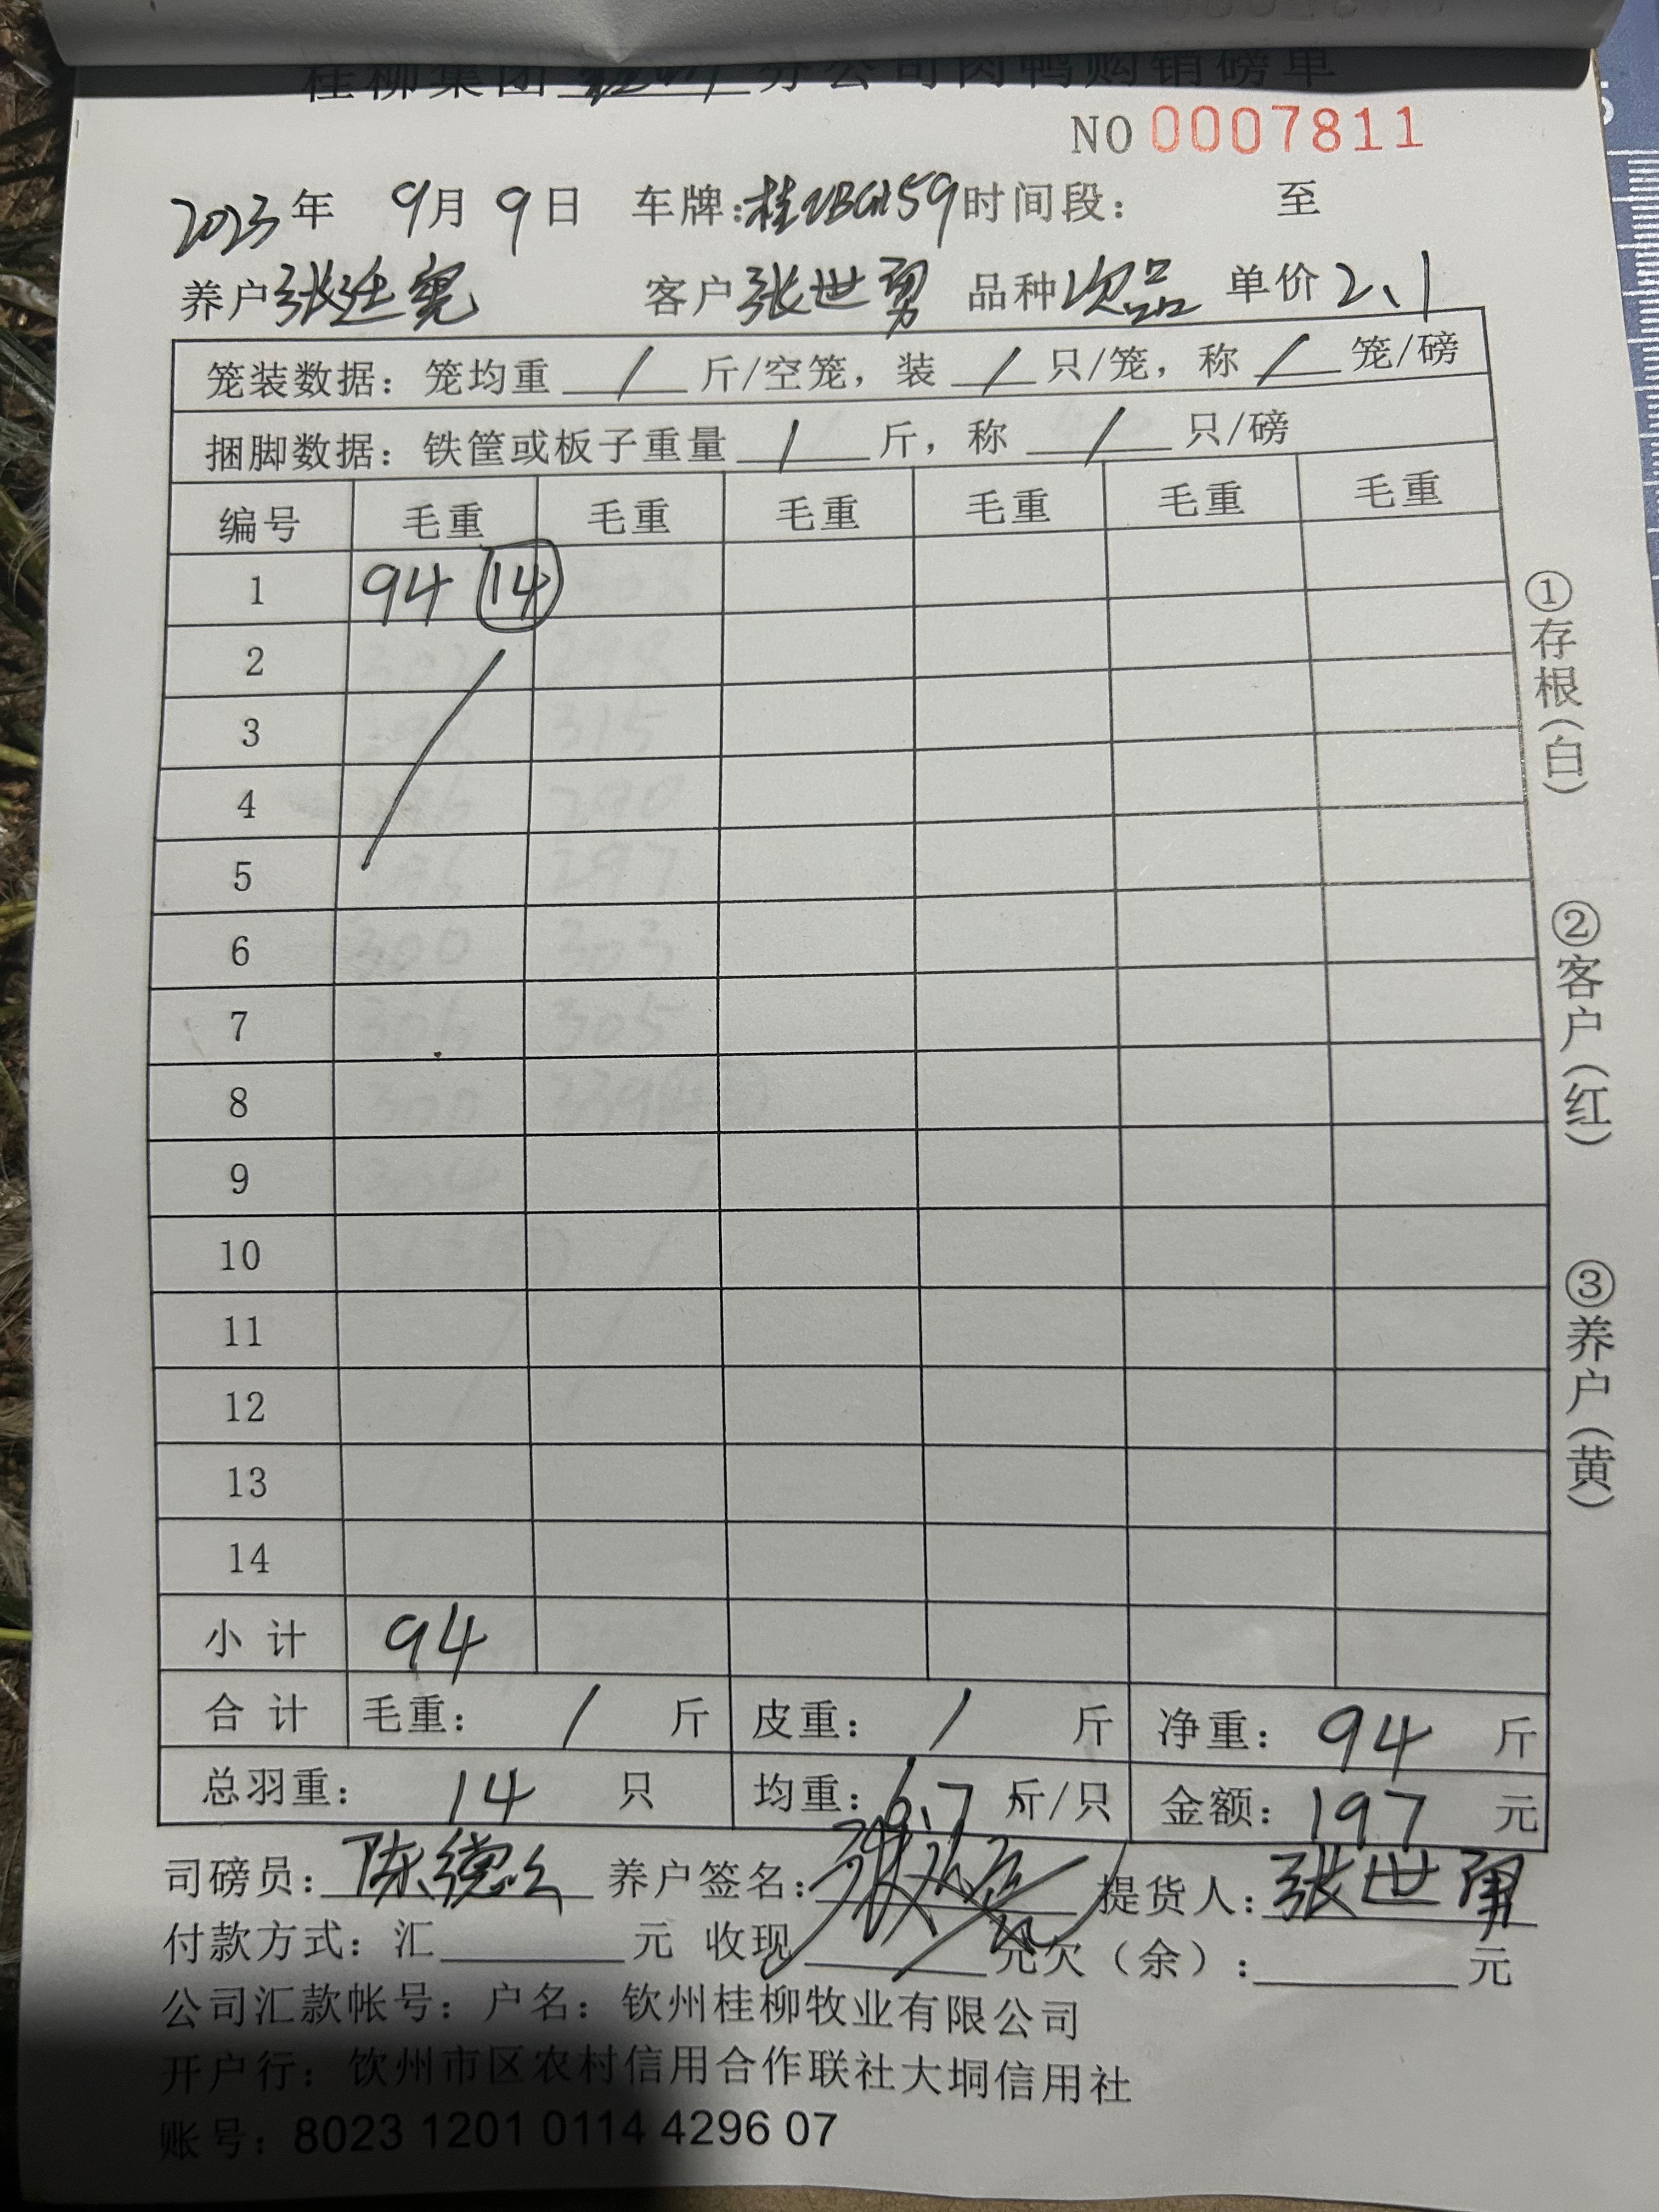 桂柳集团 分公司肉鸭购销磅单
NO 0007811
2023年 9月 9日 车牌:桂 59 时间段: 至
养户 张廷 客户 张世勇 品种 次品 单价 2、1
笼装数据: 笼均重 / 斤/空笼, 装 / 只/笼, 称 / 笼/磅
捆脚数据: 铁筐或板子重量 / 斤, 称 / 只/磅
编号 毛重 毛重 毛重 毛重 毛重 毛重
1 94 14
2
3
4
5
6
7
8
9
10
11
12
13
14
小计 94
合计 毛重: / 斤 皮重: / 斤 净重: 94 斤
总羽重: 14 只 均重: 6、7 斤/只 金额: 197 元
司磅员: 陈德 养户签名: 提货人: 张世勇
付款方式: 汇 元 收现 元 欠(余): 元
公司汇款帐号: 户名: 钦州桂柳牧业有限公司
开户行: 钦州市区农村信用合作联社大垌信用社
账号: 8023 1201 0114 4296 07
①存根(白)
②客户(红)
③养户(黄)